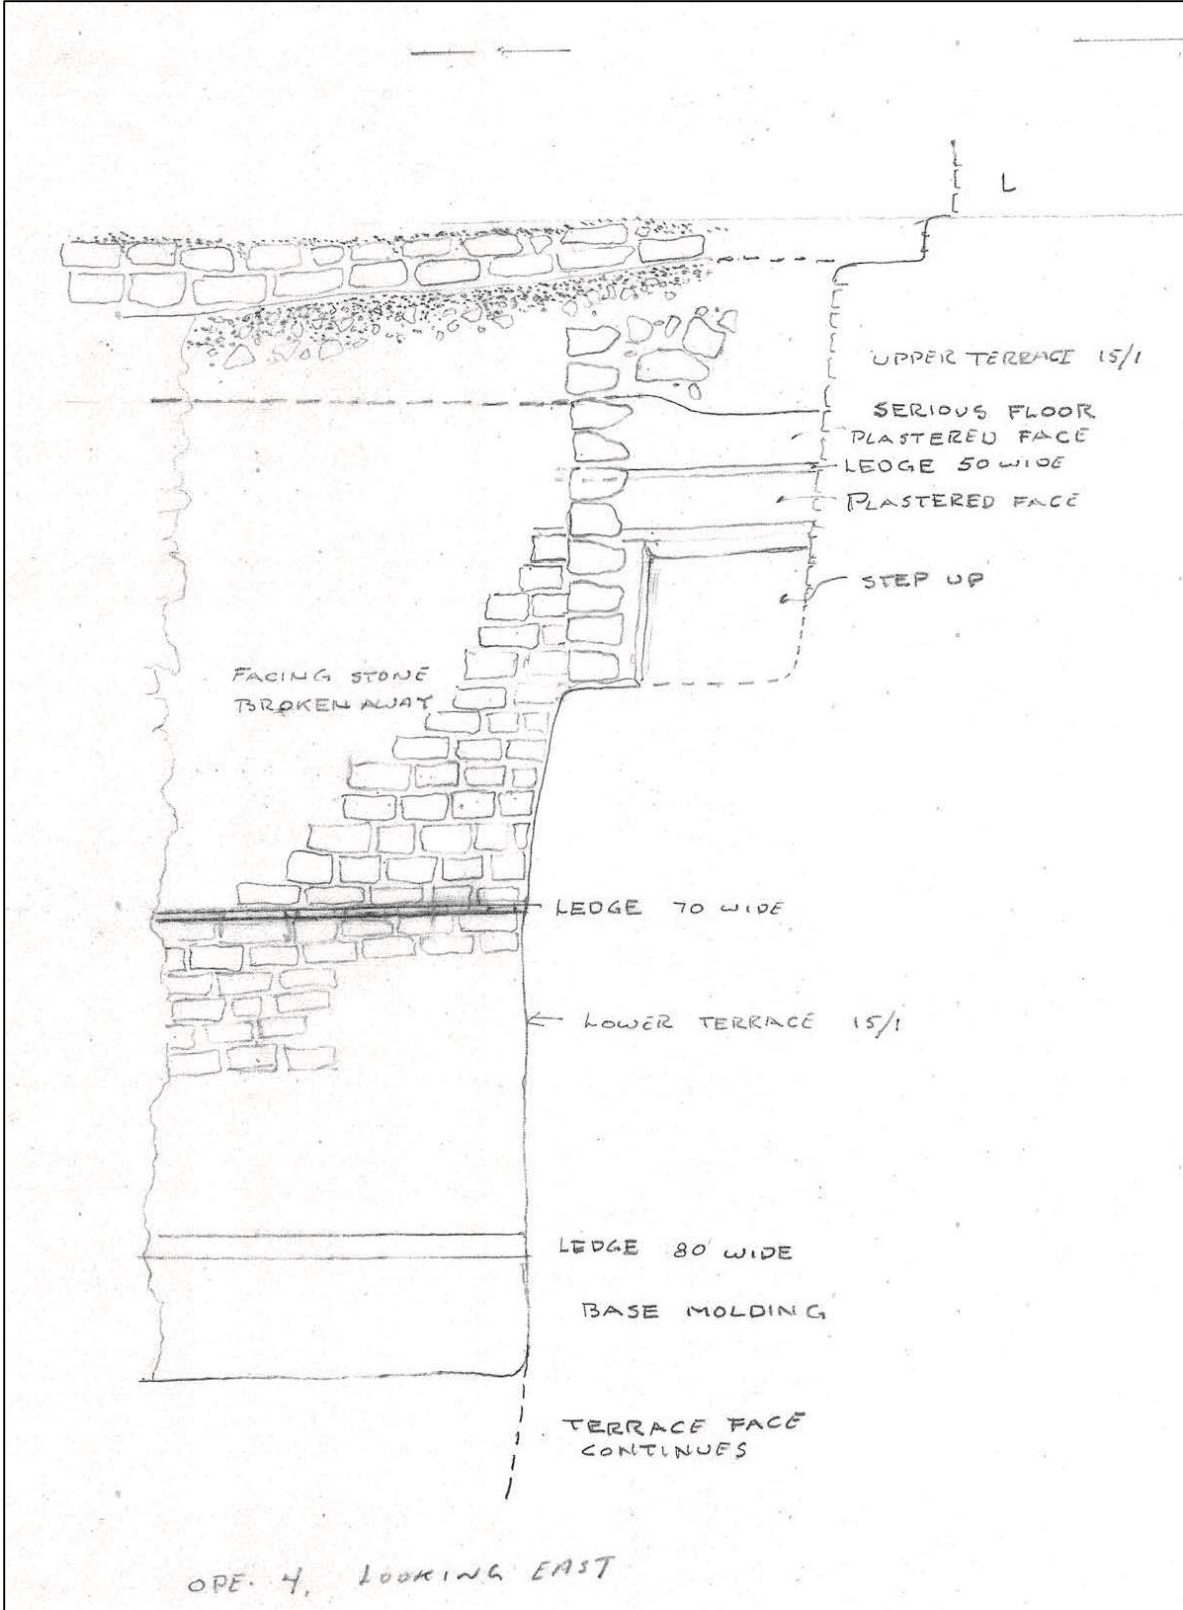 L
UPPER TERRACE 15/1
SERIOUS FLOOR
PLASTERED FACE
LEDGE 50 WIDE
PLASTERED FACE
STEP UP
FACING STONE
BROKEN AWAY
LEDGE 70 WIDE
LOWER TERRACE 15/1
LEDGE 80 WIDE
BASE MOLDING
TERRACE FACE
CONTINUES
OPE. 4, LOOKING EAST